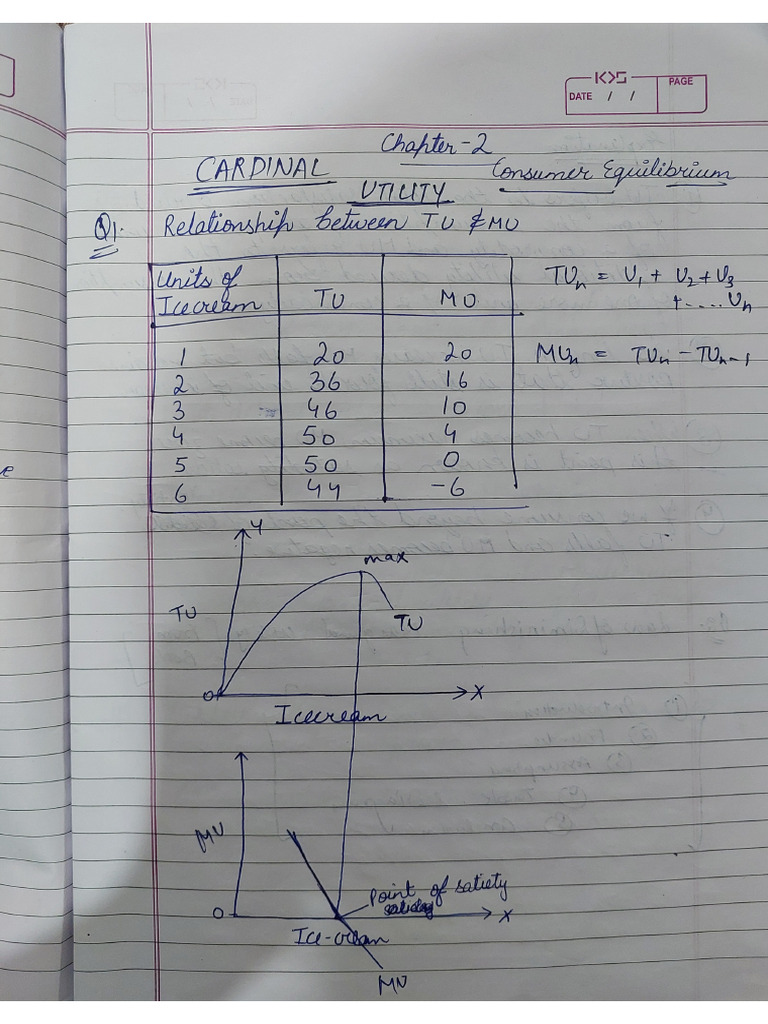 KDS
DATE / / PAGE
Chapter-2
CARDINAL Consumer Equilibrium
UTILITY
Q1. Relationship between TU & MU
Units of Icecream TU MU
1 20 20
2 36 16
3 46 10
4 50 4
5 50 0
6 44 -6
TUn = U1 + U2 + U3
+ ..... Un
MUn = TUn - TUn-1
Y
max
TU
TU
O X
Icecream
MU
Point of satiety
O X
Ice-cream
MU